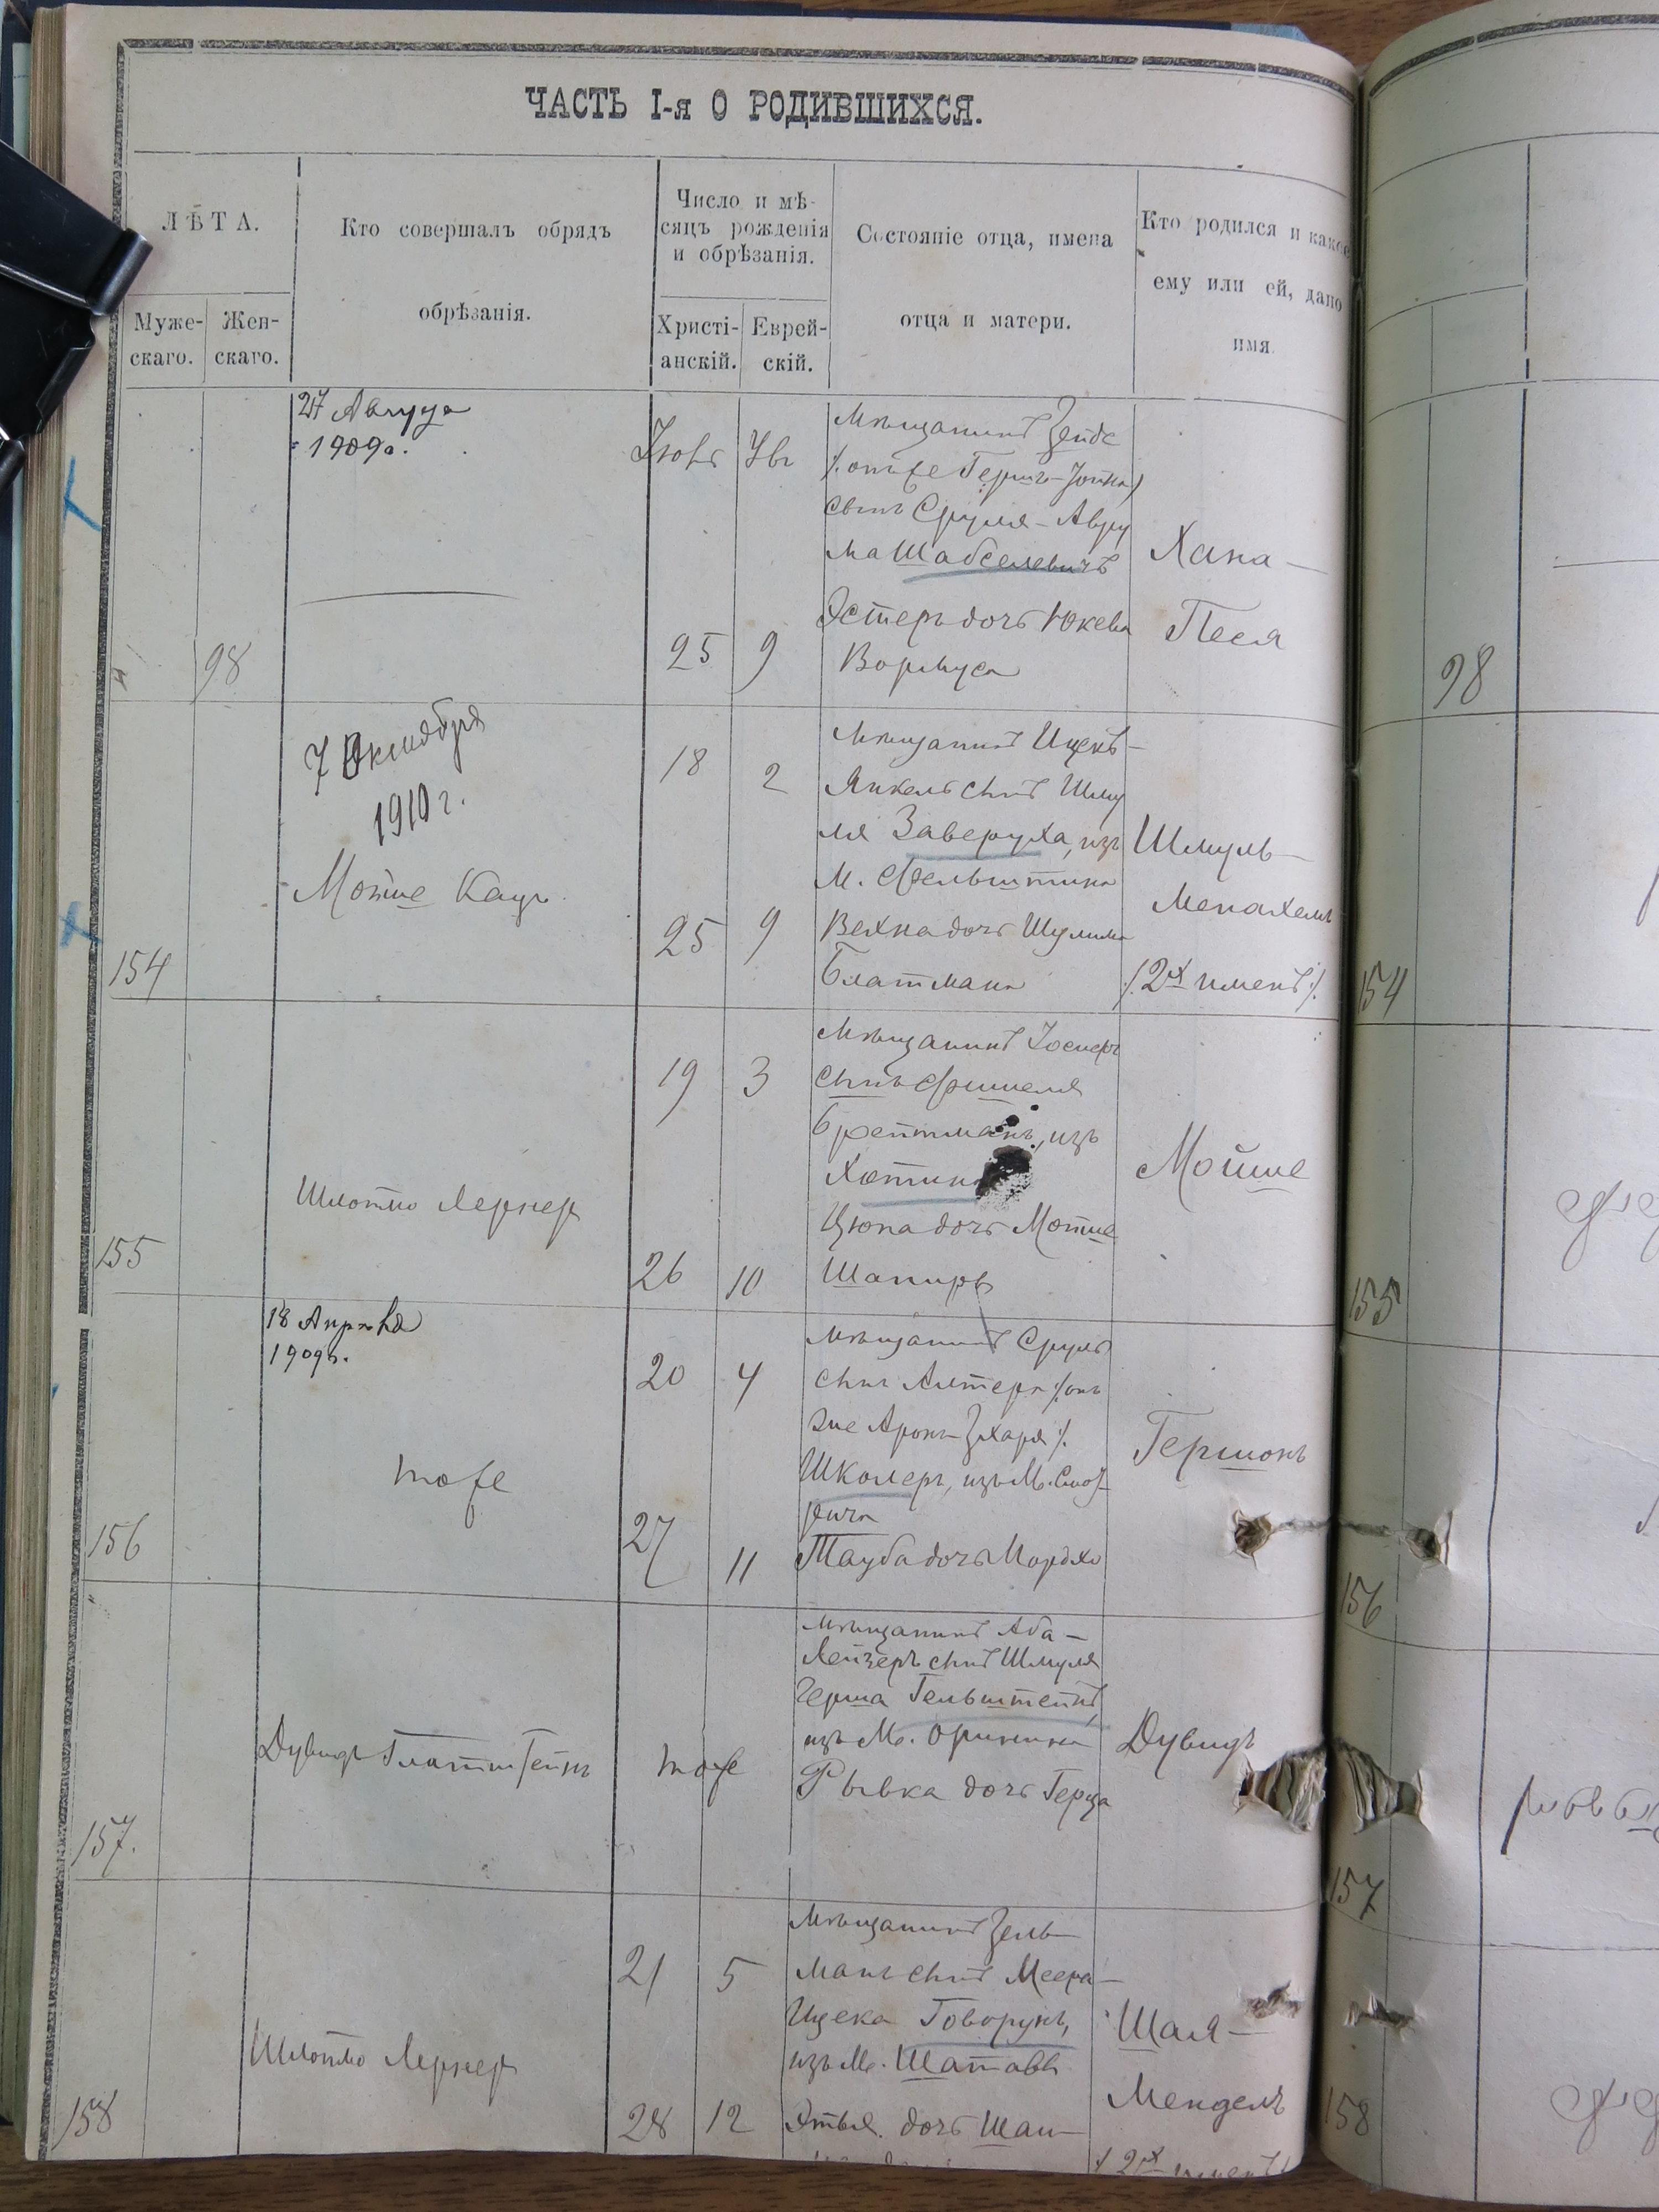 ЧАСТЬ I-я О РОДИВШИХСЯ.
ЛѢТА.
Муже-
скаго.
Жен-
скаго.
Кто совершалъ обрядъ
обрѣзанія.
Число и мѣ-
сяцъ рожденія
и обрѣзанія.
Христі-
анскій.
Еврей-
скій.
Состояніе отца, имена
отца и матери.
Кто родился и какое
ему или ей, дано
имя.
98
27 Августа
1909г.
25
9
Мѣщанинъ Зейде
/. онъ же Гершъ-Іойна /
сынъ Сруля-Авру
ма Шабселевичъ
Эстеръ дочь Юкева
Вормуса
Хана-
Песя
98
154
7 Октября
1910 г.
Мотше Кацъ
18
2
25
9
Мѣщанинъ Ицекъ-
Янкель сынъ Шму
ля Заверуха, изъ
М. Фельштина
Вехна дочь Шулима
Блатмана
Шмуль-
Менахемъ
/. 2хъ именъ /.
154
155
Шлотмо Лернер
19
3
26
10
Мѣщанинъ
сынъ Фишеля
изъ
Хотина
Цюпа дочь Мотше
Шапиръ
Мойше
155
156
18 Апрѣля
1909г.
тоже
20
4
27
11
Мѣщанинъ Сруль
сынъ Алтера /. онъ
же Аронъ-Зхаря /.
Школеръ, изъ М. Смот-
рича
Тауба дочь Мордхо
Гершонъ
156
157.
Дувидъ Глатштейнъ
тоже
Мѣщанинъ Аба-
Лейзеръ сынъ Шмуля
Герша Гельштейнъ,
изъ М. Оринина
Рывка дочь Герца
Дувидъ
157
158
Шлотмо Лернер
21
5
28
12
Мѣщанинъ Зель-
манъ сынъ Меера-
Ицека Говорунъ,
изъ М. Шатавъ
Этля дочь Шаи-
Шая-
Мендель
/. 2хъ именъ /.
158